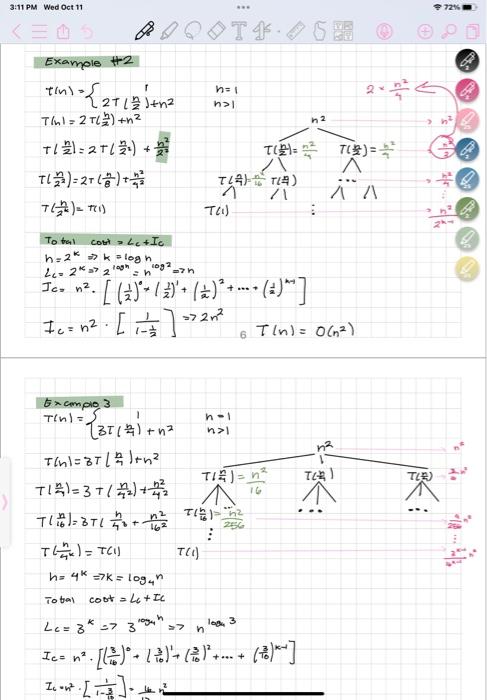 3:11 PM Wed Oct 11
72%
Example #2
T(n) = { 1 n=1
2T(n/2)+n² n>1
T(n) = 2T(n/2)+n²
T(n/2) = 2T(n/2²) + n²/2²
T(n/2²) = 2T(n/8) + n²/4²
T(n/2ᵏ) = T(1)
2 × n²/4
n² n²
T(n/2) = n²/4 T(n/2) = n²/4 n²/2
T(n/4) = n²/16 T(n/4) ... n²/4
T(1) ⋮ n²/2ᵏ⁻¹
Total cost = Lc + Ic
n = 2ᵏ => k = log n
Lc = 2ᵏ => 2^log n = n^log 2 => n
Ic = n² · [(1/2)⁰ + (1/2)¹ + (1/2)² + ... + (1/2)ᵏ⁻¹]
Ic = n² · [1/(1-1/2)] => 2n²
6 T(n) = O(n²)
Example 3
T(n) = { 1 n=1
3T(n/4) + n² n>1
T(n) = 3T(n/4)+n²
T(n/4) = 3T(n/4²) + n²/4²
T(n/16) = 3T(n/4³) + n²/16²
T(n/4ᵏ) = T(1)
n² n²
T(n/4) = n²/16 T(n/4) T(n/4)
T(n/16) = n²/256 ... ...
T(1)
n = 4ᵏ => k = log₄ n
Total cost = Lc + Ic
Lc = 3ᵏ => 3^log₄ n => n^log₄ 3
Ic = n² · [(3/16)⁰ + (3/16)¹ + (3/16)² + ... + (3/16)ᵏ⁻¹]
Ic = n² · [1/(1-3/16)] =